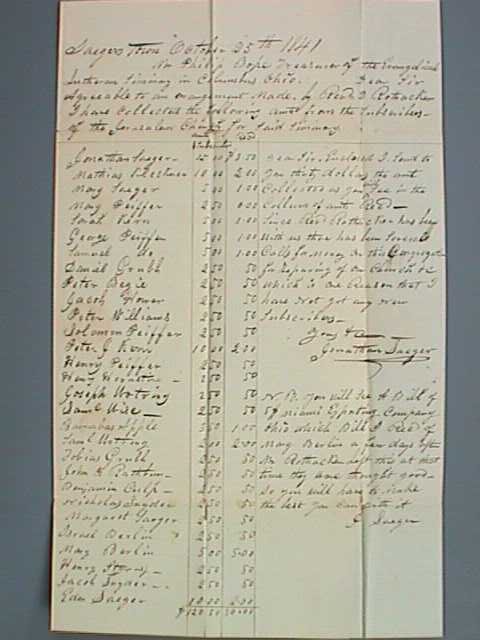 Saegers Town October 25th 1841
Mr Philip Pope Treasurer of the Evangelical
Lutheran Siminary in Columbus Ohio. Dear Sir
Agreeable to an arangement Made. by Revd D Rothacker
I have Collected the following amt from the Subscribers
of the Jerusalem Church for Said Siminary
Jonathan Saeger 3.50
Mathias 10 00 2 00
Mary Saeger 5 00 1 00
Mary Peiffer 2 50
Sarah Kern 5 00 1 00
George Peiffer 5 00 1 00
Samuel Do 5 00 1 00
Daniel Grubb 2 50 50
Peter 2 50 50
Jacob Flower 2 50 50
Peter Williams 2 50 50
Solomon Peiffer 2 50 50
Peter J Kern 10 00 2.00
Henry Peiffer 2 50 50
Henry 2 50 50
Joseph Wotring 2 50 50
Saml Wise 2 50 50
Barnabas 5 00 1 00
Saml Wotring 2 00
Tobias Grubb 2 50 50
John 2 50 50
Benjamin Culp 2 50 50
Nicholas Snyder 2 50 50
Margaret Saeger 2 50 50
Israel Berlin 2 50 50
May Berlin 5 00 5 00
Henry 2 50 50
Jacob Snyder 2 50 50
Eden Saeger 10 00 2 00
$120.50 30.00
Dear Sir. Enclosed I Send to
You thirty dollars the amt
Collected as you See in the
Collum of amt Recd
Since Revd Rothacker has been
With us there has been Several
Calls for Money in this Congregation
for Repairing of our Church &c
which is one Reason that I
have Not got any New
Subscribers
Yours &c
Jonathan Saeger
N B. You will See A Bill of
5$ Miami Exporting Company
Ohio which Bill I Recd of
May Berlin a few days after
Mr Rothacker left this at that
time they was thought good
So you will have to make
the best you can of it
J Saeger